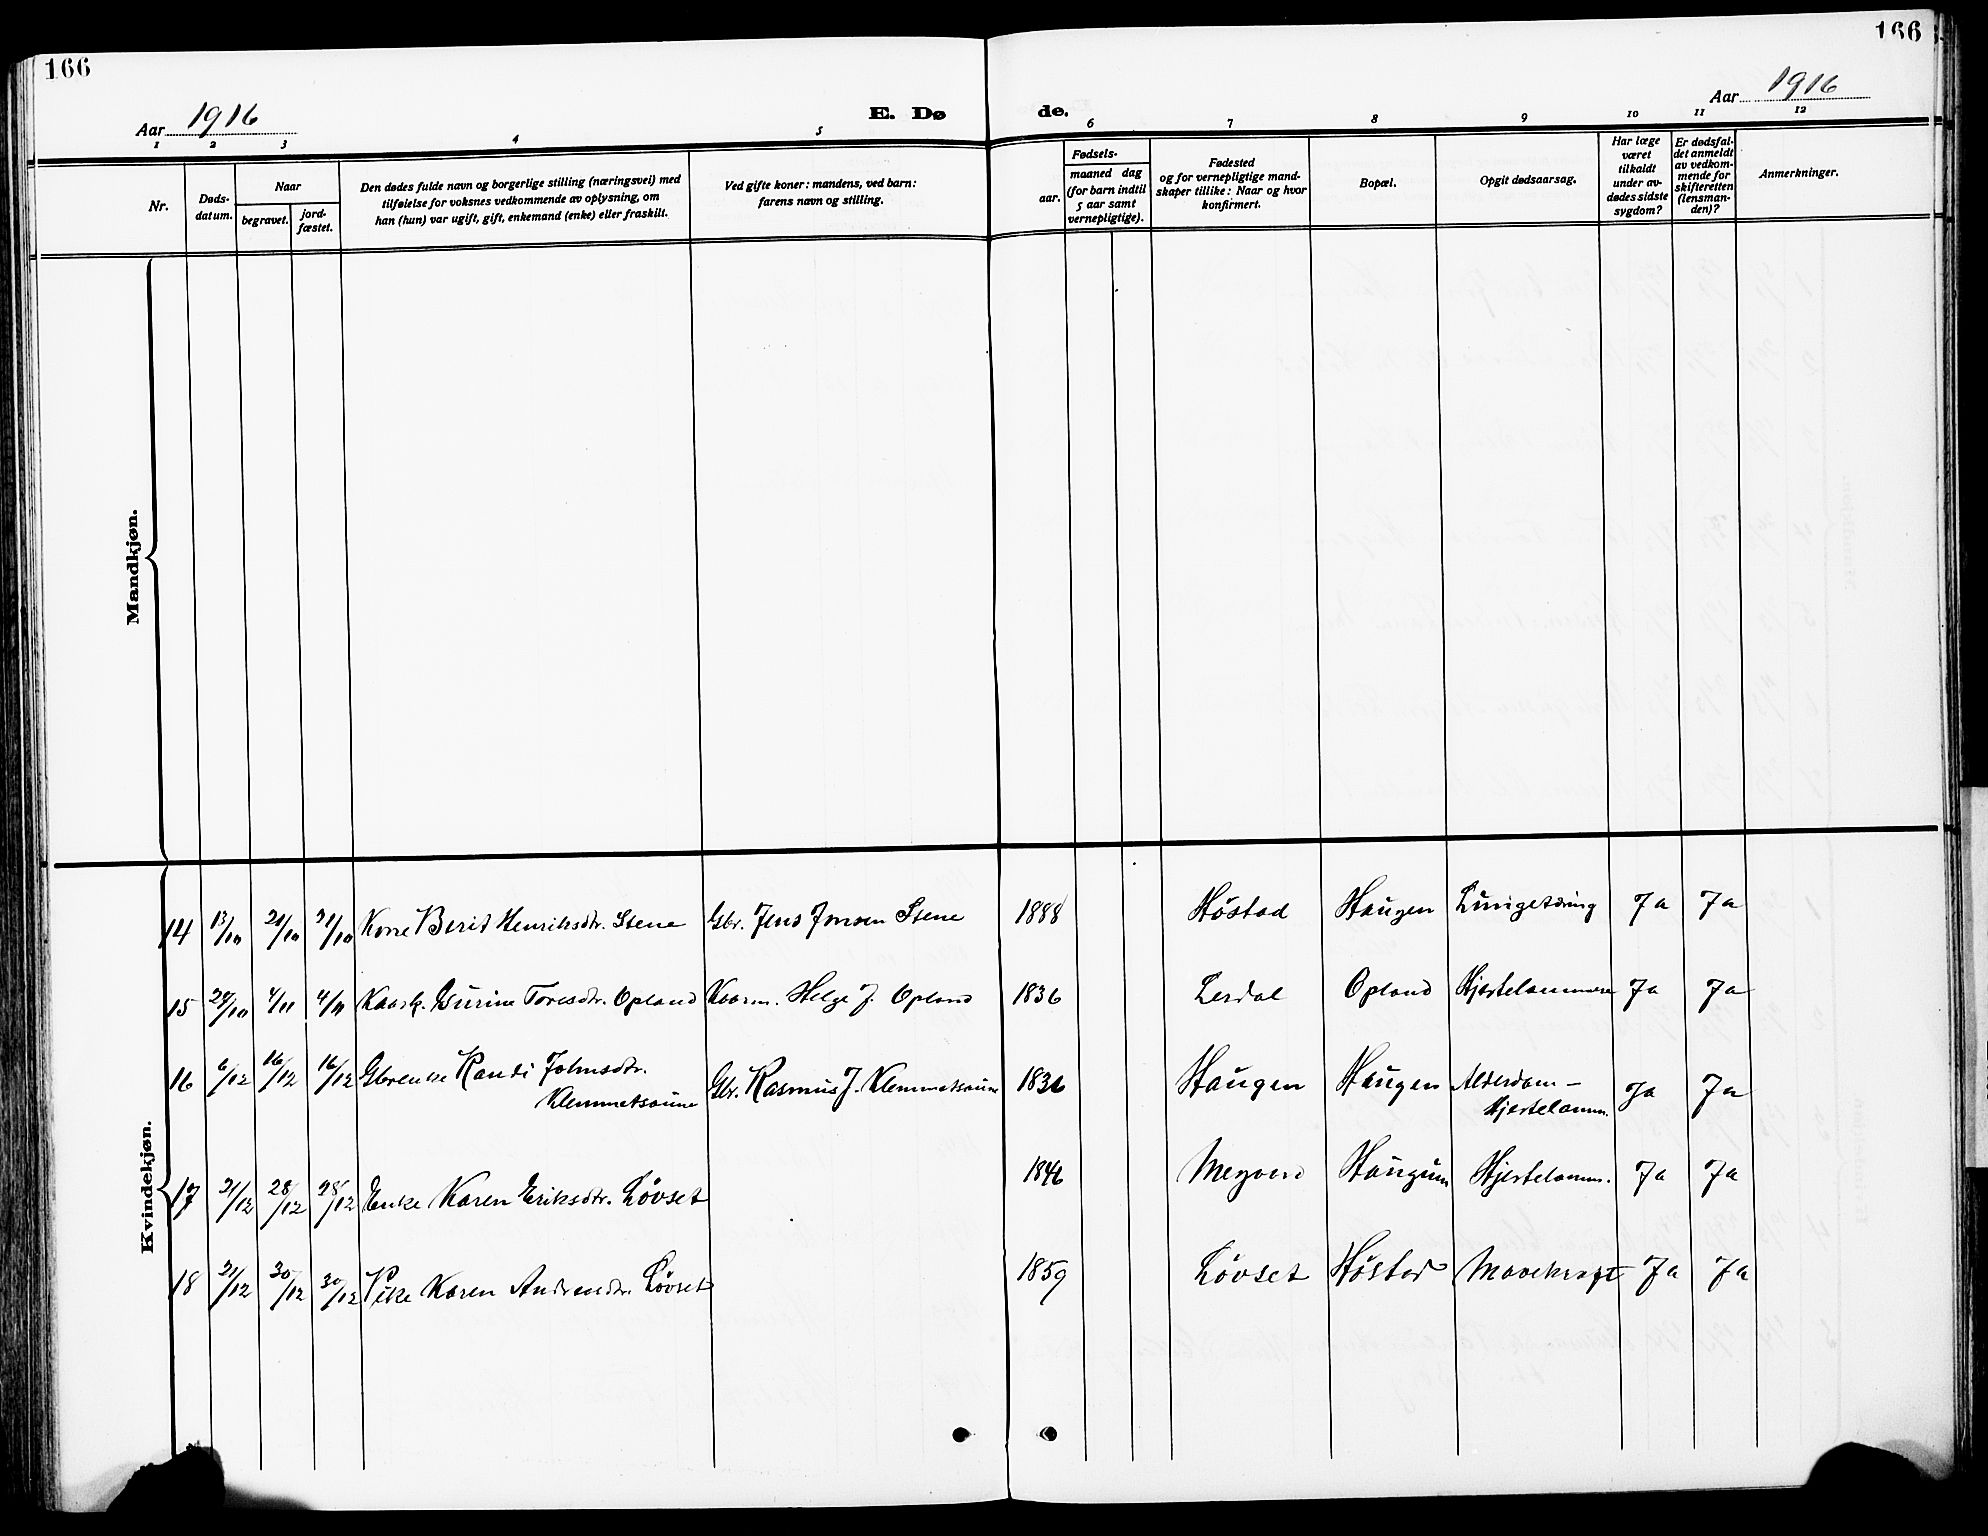 166
166
Aar 1916
E. Dø
de.
Aar 1916
1 2 3 4 5 6 7 8 9 10 11 12
Nr.
Døds-
datum.
Naar
begravet.
jord-
fæstet.
Den dødes fulde navn og borgerlige stilling (næringsvei) med
tilføielse for voksnes vedkommende av oplysning, om
han (hun) var ugift, gift, enkemand (enke) eller fraskilt.
Ved gifte koner: mandens, ved barn:
farens navn og stilling.
Fødsels-
aar.
maaned dag
(for barn indtil
5 aar samt
vernepligtige).
Fødested
og for vernepligtige mand-
skaper tillike: Naar og hvor
konfirmert.
Bopæl.
Opgit dødsaarsag.
Har læge
været
tilkaldt
under av-
dødes sidste
sygdom?
Er dødsfal-
det anmeldt
av vedkom-
mende for
skifteretten
(lensman-
den)?
Anmerkninger.
Mandkjøn.
Kvindekjøn.
14 13/10 21/10 21/10 Kone Berit Henriksdtr. Stene Gbr. Jens Jonsen Stene 1888 Høstad Haugen Ja Ja
15 29/10 4/11 4/11 Gurine Toresdtr. Opland Helge J. Opland 1836 Lerdal Opland Hjertelammelse Ja Ja
16 6/12 16/12 16/12 Gbrenke Randi Johnsdtr. Gbr. Rasmus J. Klemmetsaune 1836 Haugen Haugen Alderdom - Ja Ja
Klemmetsaune Hjertelamm.
17 21/12 28/12 28/12 Enke Karen Eriksdtr. Løvset 1846 Haugum Hjertelamm. Ja Ja
18 21/12 30/12 30/12 Pike Karen Løvset 1859 Løvset Høstad Mavekræft Ja Ja